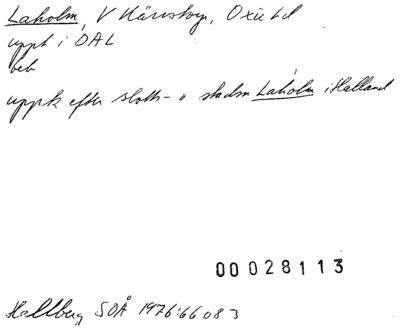 Laholm, V Kärrstorp, Oxie hd
uppt i OAL
beb
uppk efter slotts- o staden Laholm i Halland
00028113
Hallberg SOÅ 1976:66 o 83